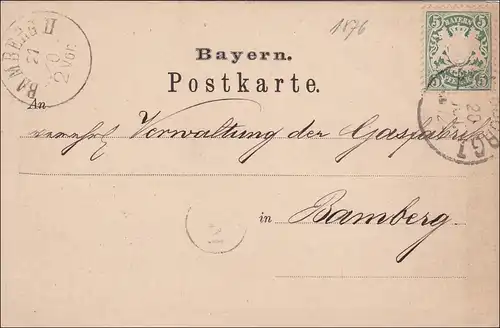 1876
BAMBERG II
21
2 Vor.
5 BAYERN 5
Bayern.
Postkarte.
An
Verwaltung der Gasfabrik
in Bamberg.